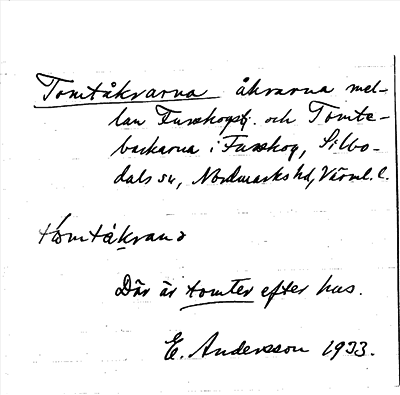 Tomtåkrarna åkrarna mel-
lan Furskogstj. och Tomte-
backarna i Furskog, Silbo-
dals sn, Nordmarks hd, Värml. l.
tomtåkrana
Där är tomter efter hus.
E. Andersson 1933.